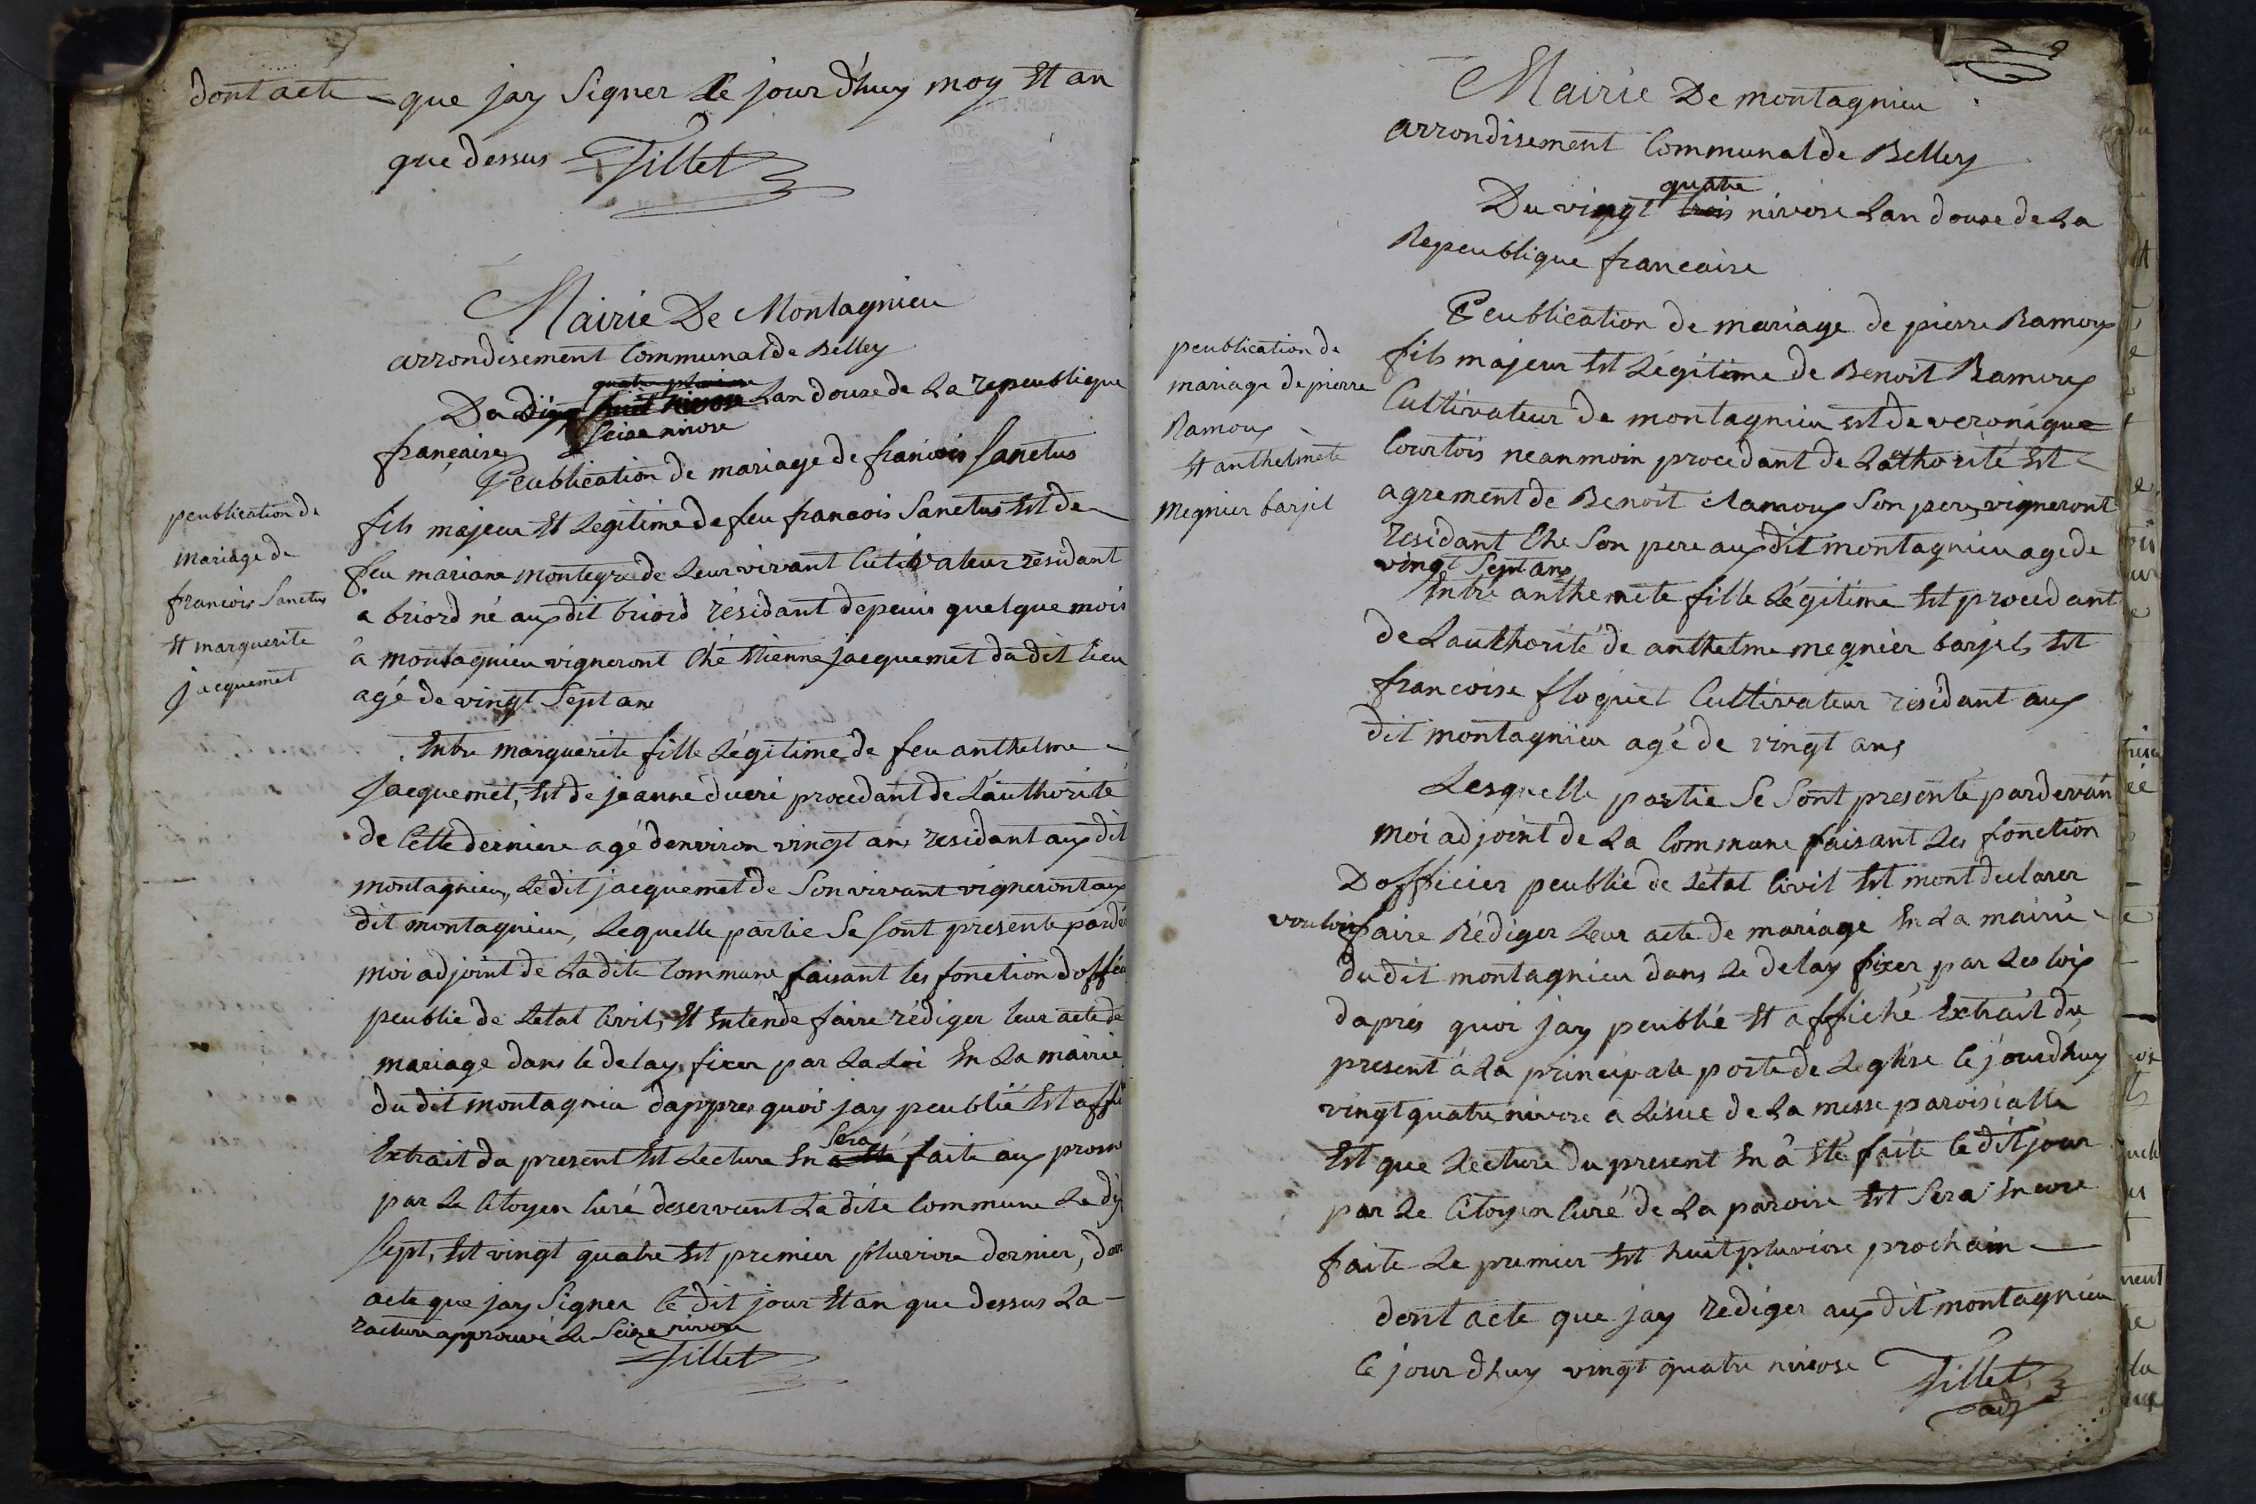 dont acte que jay Signer Le jour d'huy moy Et an
que dessus Tillet
Mairie De Montagnieu
arrondisement Communal de Belley
Du seise nivose Lan douse de La repeublique
française
Peublication de mariage de francois Sanctus
fils majeur Et Legitime de feu francois Sanctus Est de
feu mariane montegrede Leur vivant Cutivateur residant
a briord né aux dit briord résidant depeuis quelque mois
â montagnieu vigneront Ché Etienne jacquemet du dit lieu
agé de vingt Sept ans
peublication de
mariage de
francois Sanctus
Et marguerite
jacquemet
Entre marguerite fille Légitime de feu anthelme
Jacquemet, Est de jeanne ducré procedant de L'authorité
de Cette derniere agé denviron vingt ans residant aux dit
montagnieu, Ledit jacquemet de Son vivant vigneront aux
dit montagnieu, Lequelle partie Se Sont presente pardé
moi adjoint de Ladite Commune faisant les fonction doffici
peublic de Letat Civil, Et Entende faire rédiger leur acte de
mariage dans le delay fixer par La Loi En La mairie
du dit montagnieu dappres quois jay peublié Est affi
Extrait du present Est Lecture En Sera faite aux prosn
par Le Citoyen Curé deservent La dite Commune Le dix
Sept, Est vingt quatre Est premier pluviose dernier, dont
acte que jay Signer Ce dit jour Et an que dessus La
rature approuvé Le Seise nivose
Tillet
Mairie De montagnieu
arrondisement Communal de Belley
Du vingt trois quatre nivose Lan douse de La
Republique francaise
Peublication de mariage de pierre Ramoux
fils majeur Est Légitime de Benoit Ramoux
Cultivateur de montagnieu Est de veronique
Courtois neanmoin procedant de Lathorité Est
agrement de Benoit Ramoux Son pere, vigneront
residant Ché Son pere aux dit montagnieu age de
vingt Sept ans
peublication de
mariage de pierre
Ramoux
Et anthelmete
megnier barjel
Entre anthemete fille Légitime Est procedant
de Lauthorité de anthelme megnier barjel, Est
francoise floquet Cultivateur résidant aux
dit montagnieu agé de vingt ans
Lesquelle partie Se Sont presenté pardevan
moi adjoint de La Commune faisant Les fonction
D officier peublic de Létat Civil Est mont declarer
vouloir faire Rédiger Leur acte de mariage En La mairie
du dit montagnieu dans Le delay fixer par Les loix
daprés quoi jay peublié Et affiché Extrait du
present â La principale porte de Leglise Ce jourdhuy
vingt quatre nivose a Lisue de La messe paroisialle
Est que Lecture du present En â Eté faite Ce dit jour
par Le Citoyen Curé de La paroise Est Sera Encore
faite Le premier Est huit pluviose prochain
dont acte que jay rediger aux dit montagnieu
Ce jour dhuy vingt quatre nivose Tillet
adj